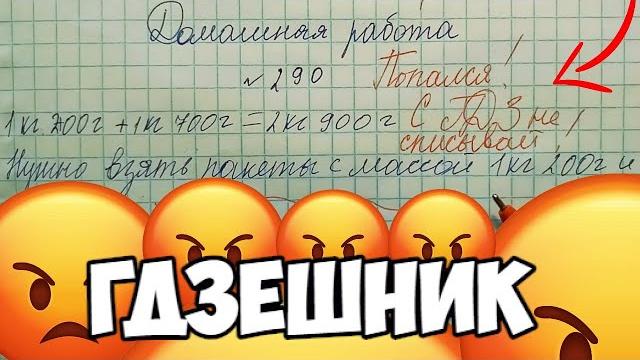 Домашняя работа
№290 Попался!
1кг 200г + 1кг 700г = 2кг 900г С ГДЗ не
списывай!
Нужно взять пакеты с массой 1кг 200г и
ГДЗЕШНИК